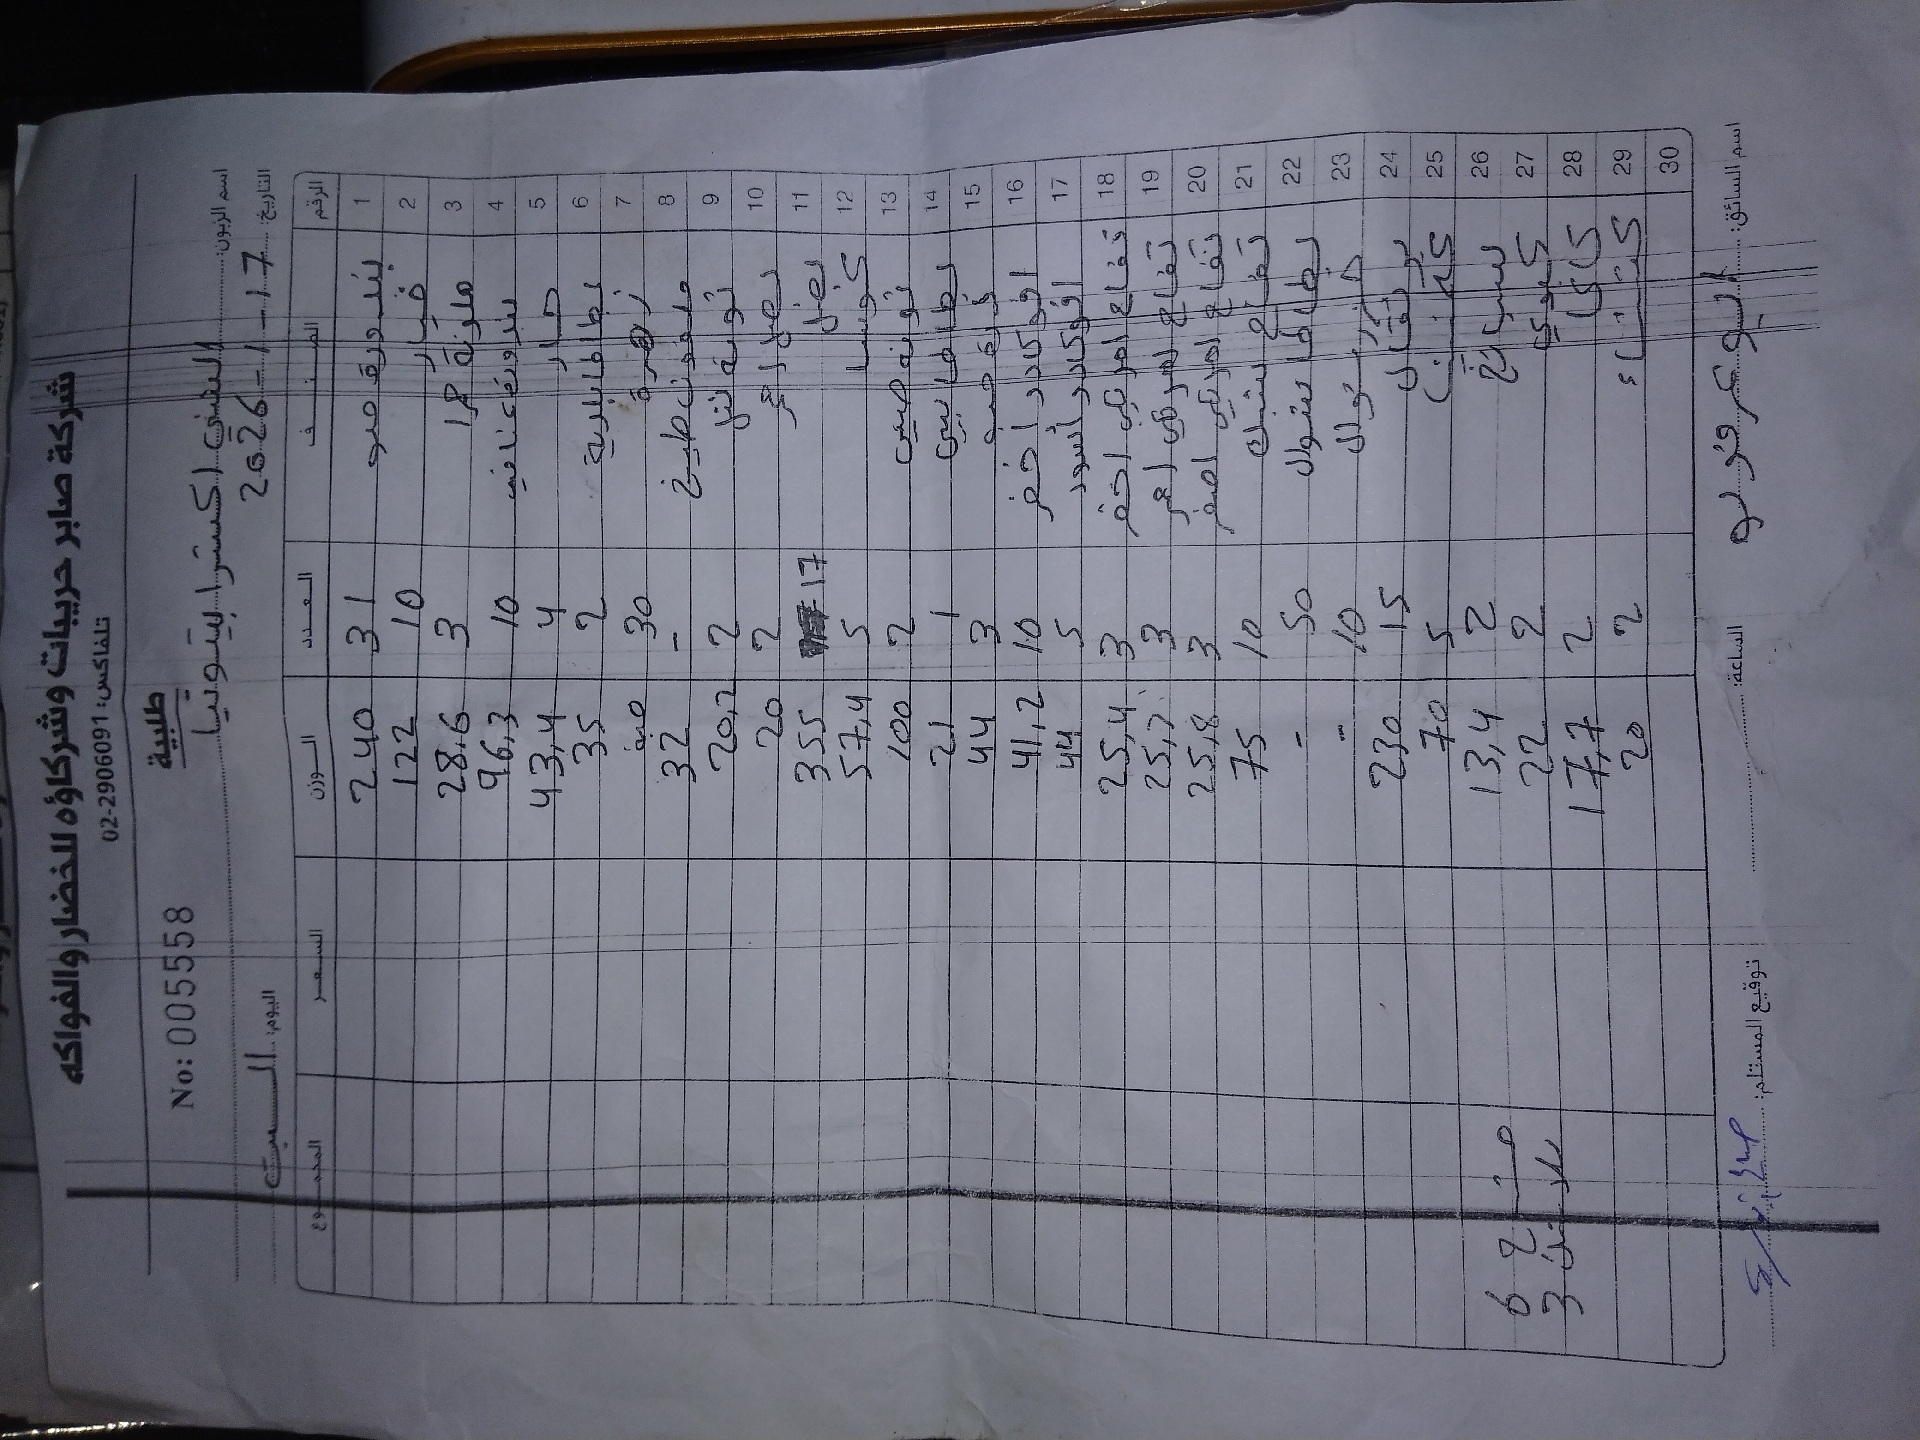 شركة صابر حريبات وشركاؤه للخضار والفواكه
تلفاكس: 02-2906091
طلبية
No: 0055558
اسم الزبون: الشني اكسترا بيتونيا
التاريخ: 17-1-2026 اليوم: السبت
الرقم الصنف العدد الوزن السعر المجموع
1 بندورة 31 240
2 خيار 10 122
3 ملوفة 3 28,6
4 10 96,3
5 4 43,4
6 بطاطا 2 35
7 زهرة 30
8 ليمون - 32
9 2 20,2
10 بصل احمر 2 20
11 بصل 17 355
12 كوسا 5 57,4
13 2 100
14 بطاطا 1 21
15 3 44
16 افوكادو اخضر 10 41,2
17 افوكادو اسود 5 44
18 تفاح امريكي اخضر 3 25,4
19 تفاح امريكي احمر 3 25,7
20 تفاح امريكي اصفر 3 25,8
21 تفاح 10 75
22 بطاطا شوال 50 -
23 شوال 10 -
24 برتقال 15 230
25 5 70
26 2 13,4
27 2 22
28 كاكا 2 17,7
29 كستناء 2 20
30
6
3
اسم السائق: ابو الساعة: توقيع المستلم: